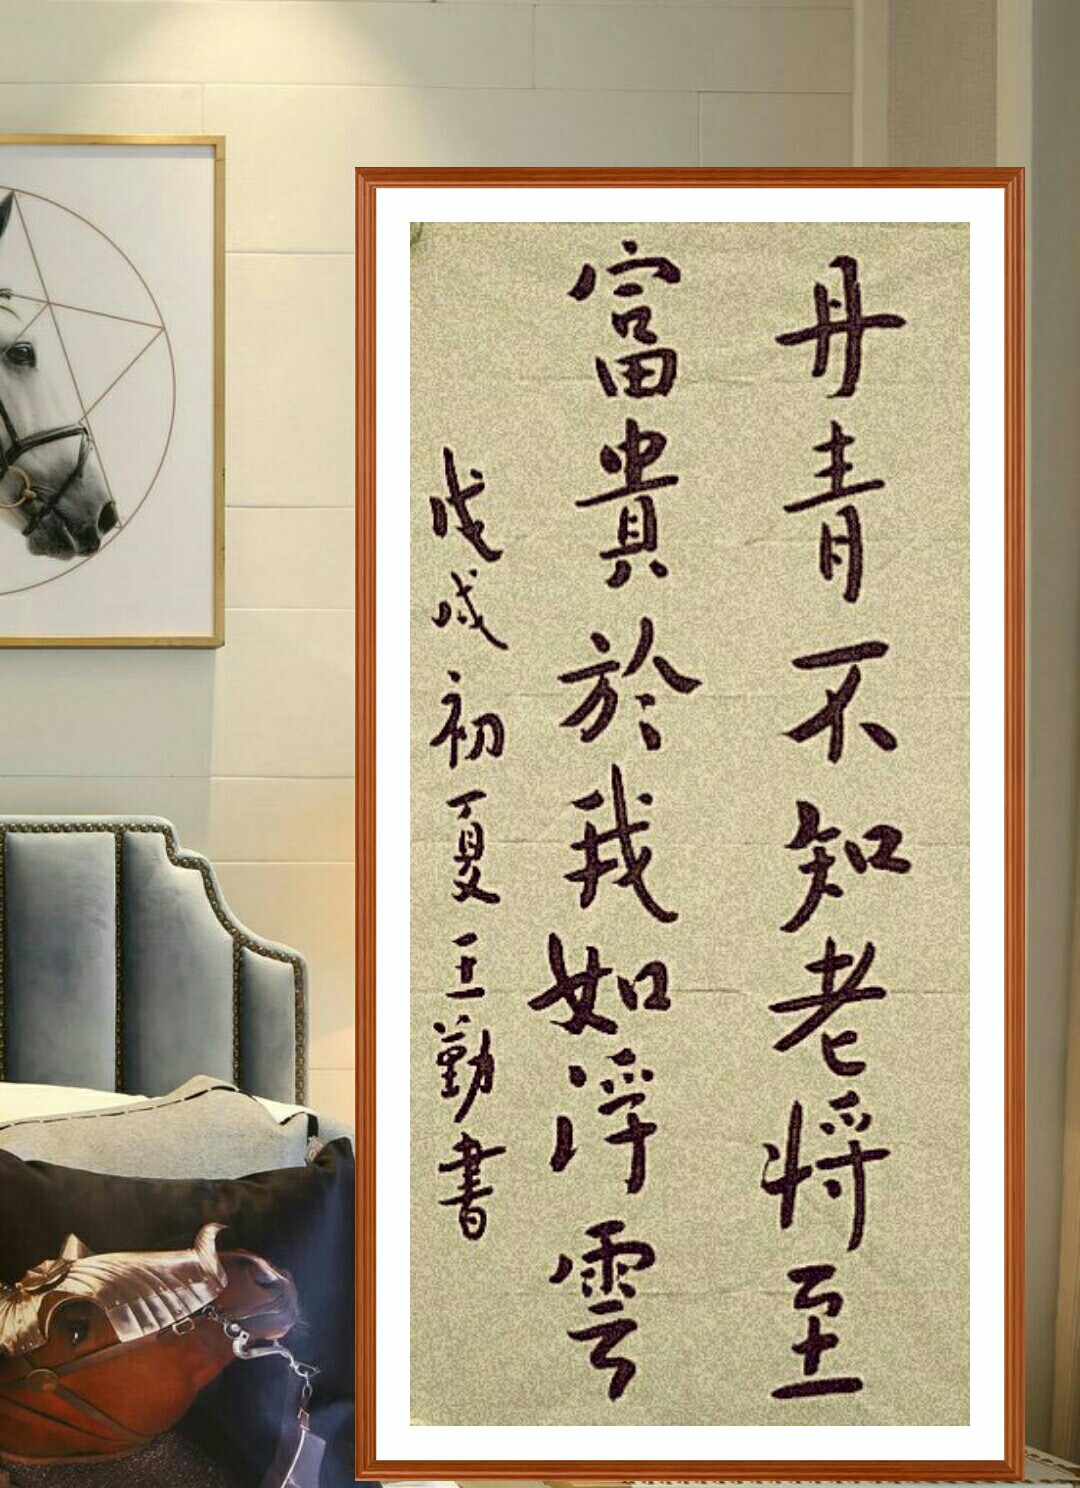 丹青不知老將至
富貴於我如浮雲
戊戌初夏王勤書